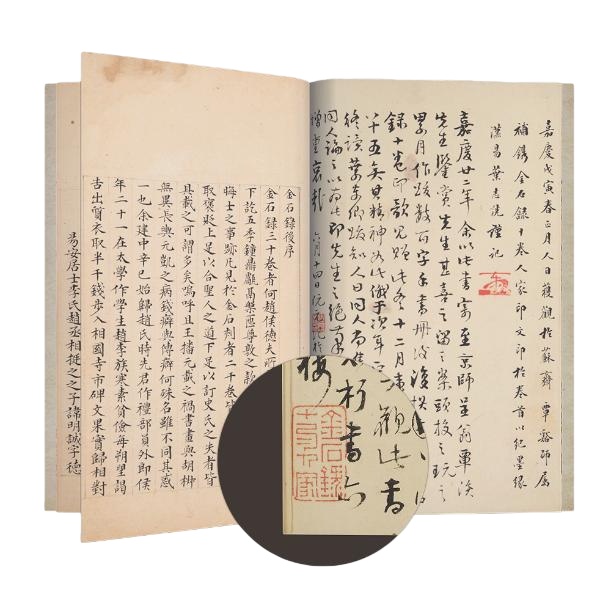 嘉慶戊寅春正月人日獲觀於蘇齋覃谿師屬
補鐫金石錄十卷人家印文印於卷首以紀墨緣
漢陽葉志詵謹記
嘉慶廿二年余以此書寄至京師呈翁覃溪
先生鑒賞先生甚喜留之案頭校之玩之
累月作跋數百字手書冊後
錄十卷印歌見貽此冬十二月
觀此書
十五矣其精神如此俄于次年
終讀葉東卿跋知
人日同人
同人論之以為此即先生之絕筆
增重哀
六月十四日阮元記於
金石錄十卷人家
金石錄後序
金石錄三十卷者何趙侯德夫所
下訖五季鐘鼎甗鬲槃匜尊敦之款
晦士之事跡凡見於金石刻者二千卷皆
取褒貶上足以合聖人之道下足以訂史氏之失者皆
具載之可謂多矣嗚呼自王播元載之禍書畫與胡椒
無異長輿元凱之病錢癖與傳癖何殊名雖不同其惑
一也余建中辛巳始歸趙氏時先君作禮部員外郎侯
年二十一在太學作學生趙李族寒素貧儉每朔望謁
告出質衣取半千錢步入相國寺市碑文果實歸相對
易安居士李氏趙丞相挺之之子諱明誠字德